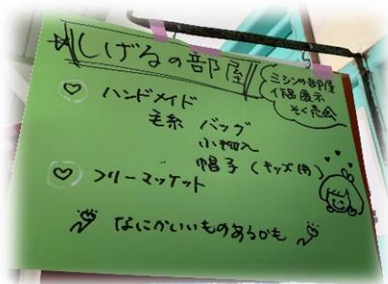 しげるの部屋
ミシンの部屋
作品展示
そく売会
♡ ハンドメイド
毛糸 バッグ
小物入
帽子 (キッズ用)
♡ フリーマッケット
なにかいいものあるかも